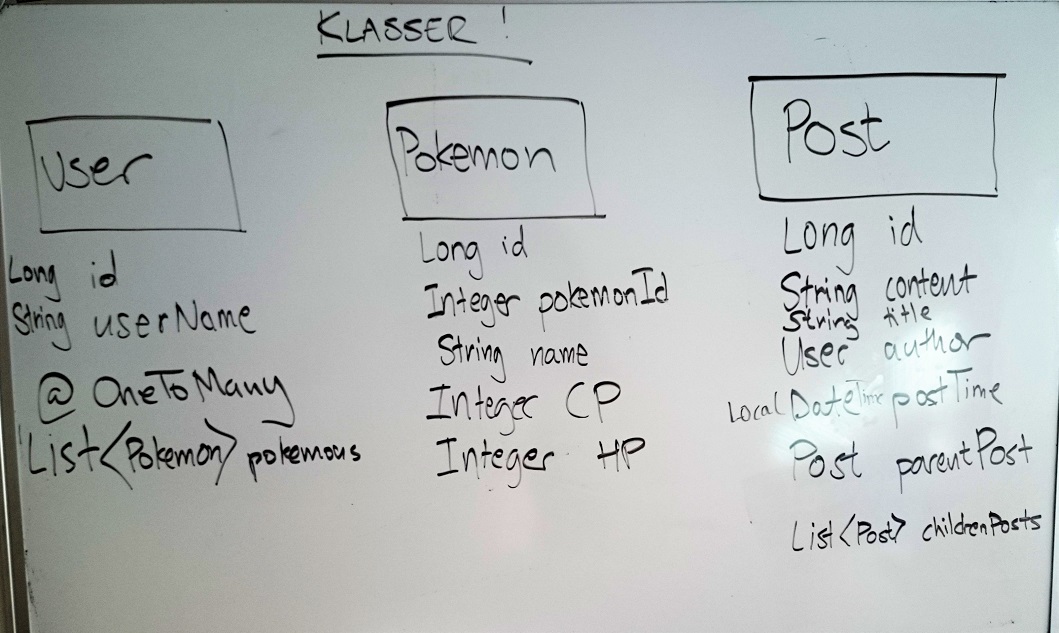 KLASSER !
User
Long id
String userName
@ OneToMany
List<Pokemon> pokemons
Pokemon
Long id
Integer pokemonId
String name
Integer CP
Integer HP
Post
Long id
String content
String title
User author
LocalDateTime postTime
Post parentPost
List<Post> childrenPosts